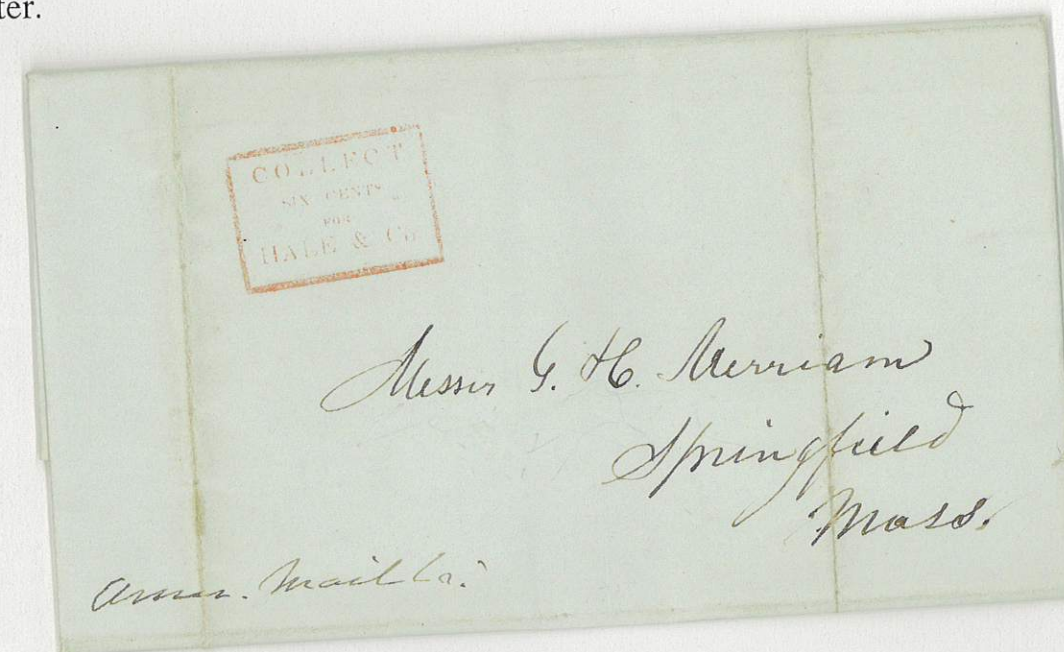 ter.
COLLECT
SIX CENTS
FOR
HALE & Co
Messrs G. & C. Merriam
Springfield
Mass.
Amer. Mail Co.